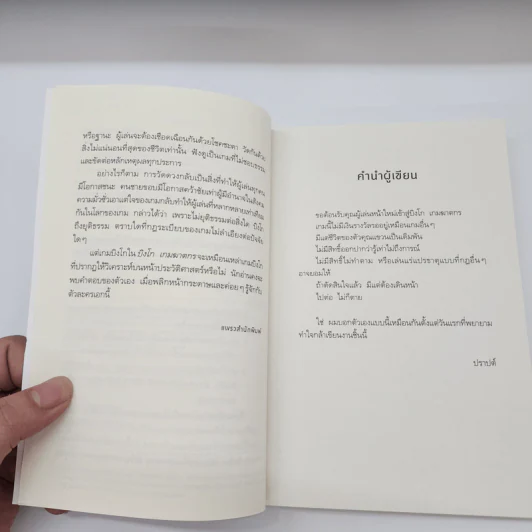 หรือฐานะ ผู้เล่นจะต้องเชือดเฉือนกันด้วยโชคชะตา วัดกันด้วย
สิ่งไม่แน่นอนที่สุดของชีวิตเท่านั้น ฟังดูเป็นเกมที่ไม่ชอบธรรม
และขัดต่อหลักเหตุผลทุกประการ
อย่างไรก็ตาม การวัดดวงกลับเป็นสิ่งที่ทำให้ผู้เล่นทุกคน
มีโอกาสชนะ คนชายขอบมีโอกาสคว้าชัยเท่าผู้มีอำนาจในสังคม
ความมั่วซั่วเอาแต่ใจของเกมกลับทำให้ผู้เล่นที่หลากหลายเท่าเทียม
กันในโลกของเกม กล่าวได้ว่า เพราะไม่ยุติธรรมต่อสิ่งใด บิงโก
ถึงยุติธรรม ตราบใดที่กฎระเบียบของเกมไม่ลำเอียงต่อปัจจัย
ใดๆ
แต่เกมบิงโกใน บิงโก เกมฆาตกร จะเหมือนแหล่งเกมบิงโก
ที่ปรากฏให้วิเคราะห์บนหน้าประวัติศาสตร์หรือไม่ นักอ่านคงจะ
พบคำตอบของตัวเอง เมื่อพลิกหน้ากระดาษและค่อยๆ รู้จักกับ
ตัวละครเอกนี้
แพรวสำนักพิมพ์
คำนำผู้เขียน
ขอต้อนรับคุณผู้เล่นหน้าใหม่เข้าสู่บิงโก เกมฆาตกร
เกมนี้ไม่มีเงินรางวัลรออยู่เหมือนเกมอื่นๆ
มีแต่ชีวิตของตัวคุณแขวนเป็นเดิมพัน
ไม่มีสิทธิ์ออกปากว่ารู้เท่าไม่ถึงการณ์
ไม่มีสิทธิ์ไม่ทำตาม หรือเล่นแร่แปรธาตุแบบที่กฎอื่นๆ
อาจยอมให้
ถ้าตัดสินใจแล้ว มีแต่ต้องเดินหน้า
ไปต่อ ไม่ก็ตาย
ใช่ ผมบอกตัวเองแบบนี้เหมือนกันตั้งแต่วันแรกที่พยายาม
ทำใจกล้าเขียนงานชิ้นนี้
ปราปต์